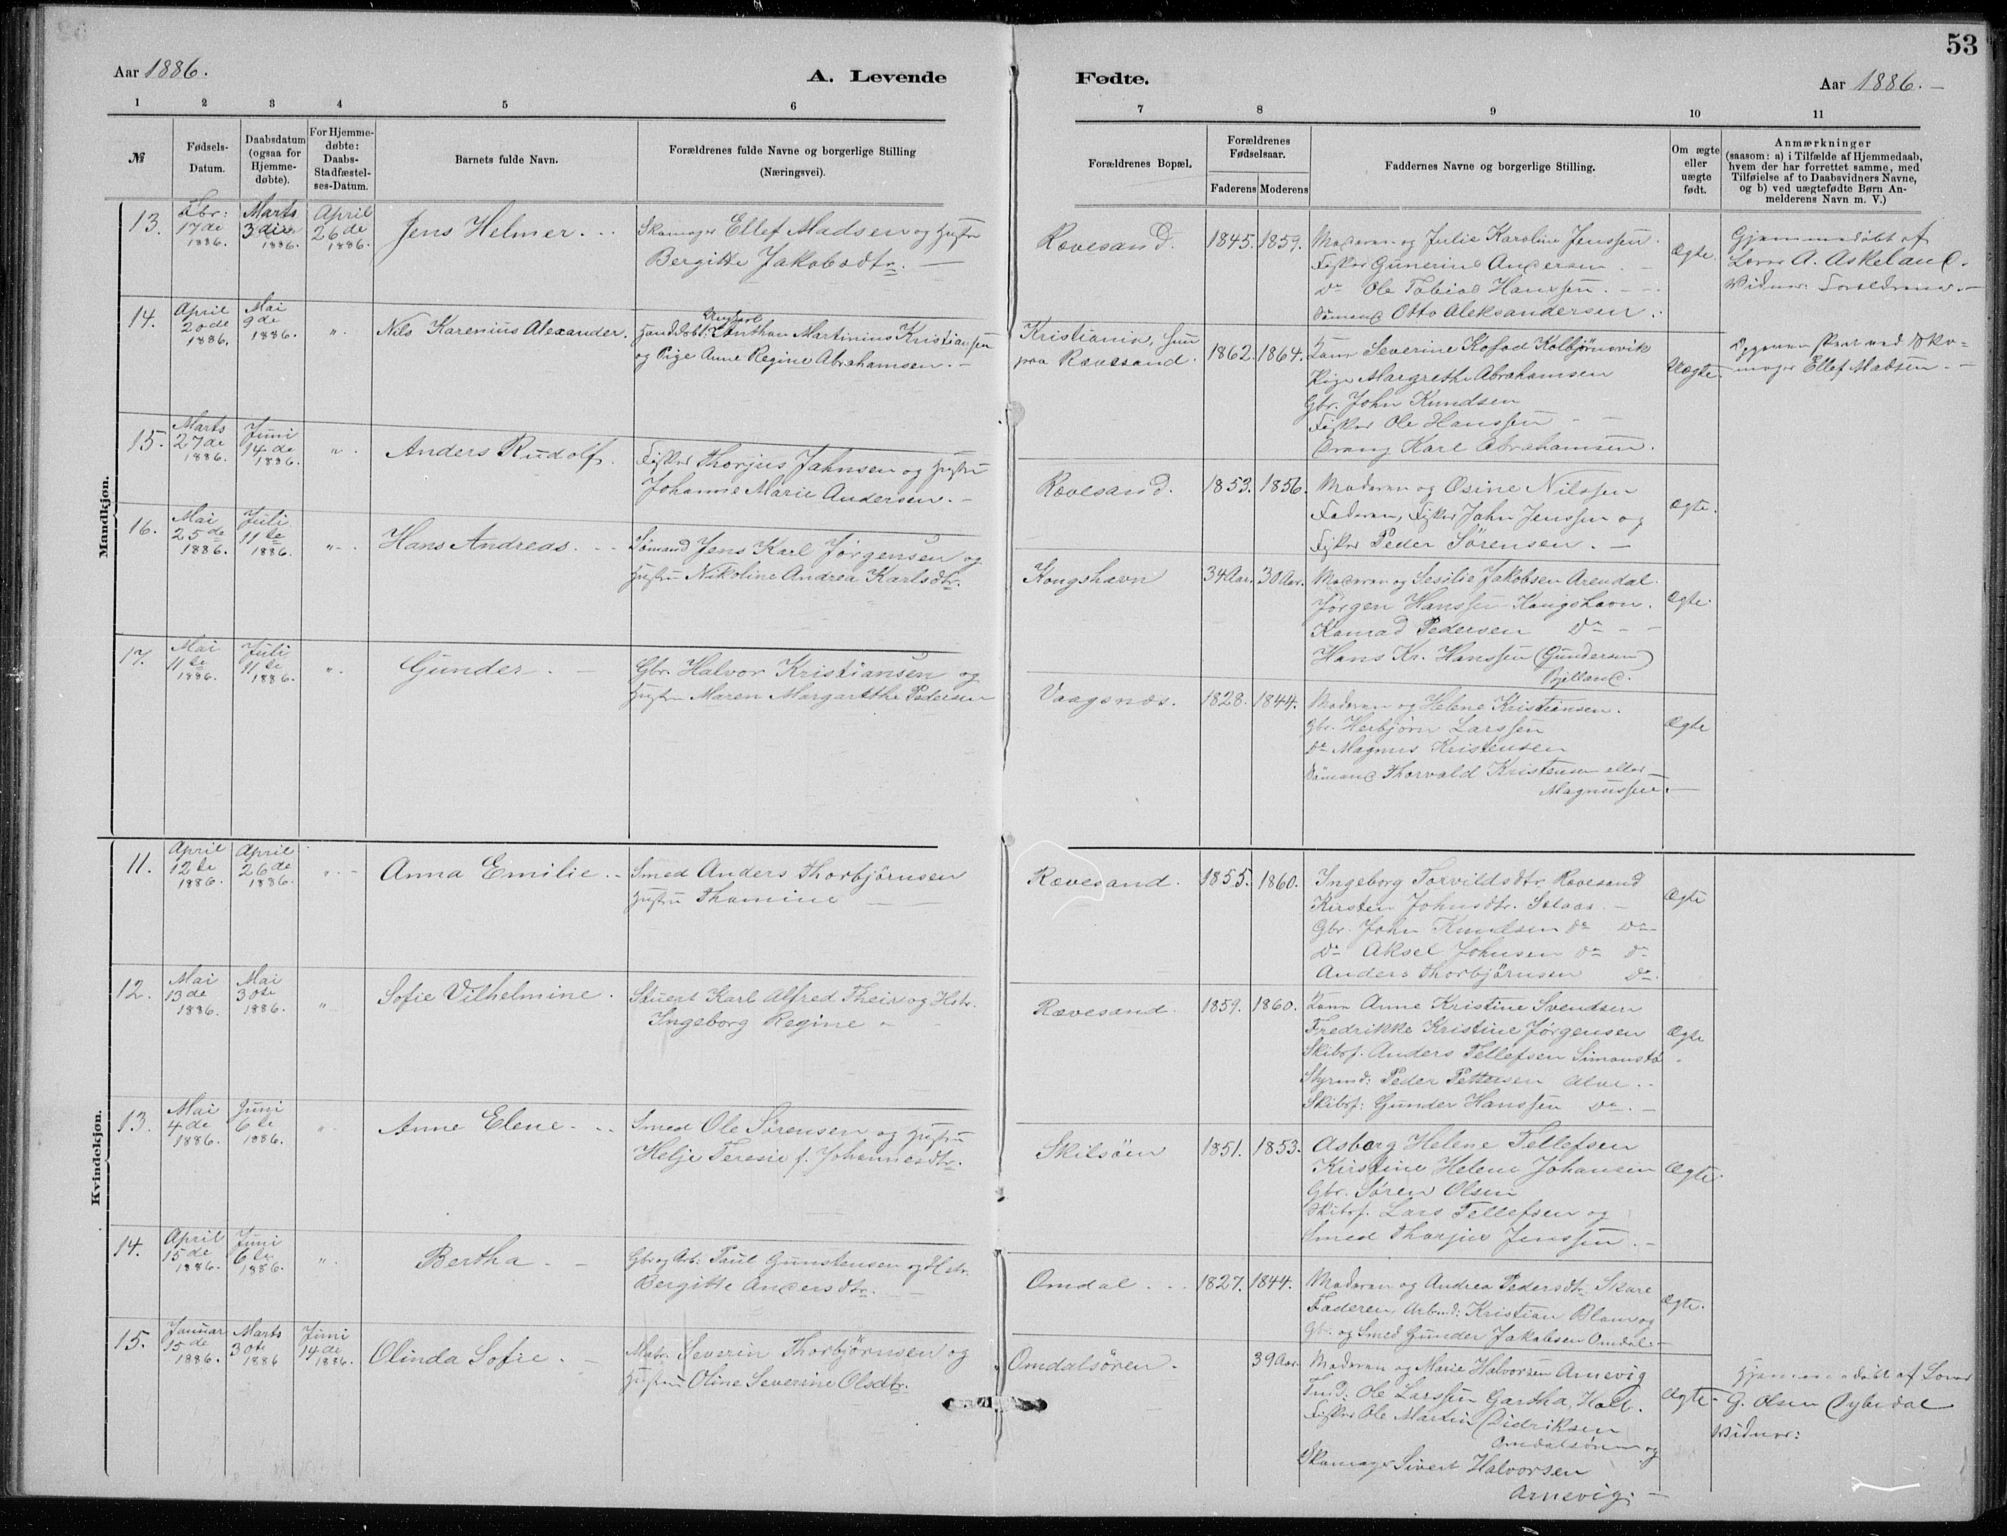 53
Aar 1886.
A. Levende
Fødte.
Aar 1886. –
1 2 3 4 5 6
7 8 9 10 11
№
Fødsels-
Datum.
Daabsdatum
(ogsaa for
Hjemme-
døbte).
For Hjemme-
døbte:
Daabs-
Stadfæstel-
ses-Datum.
Barnets fulde Navn.
Forældrenes fulde Navne og borgerlige Stilling
(Næringsvei).
Forældrenes Bopæl.
Forældrenes
Fødselsaar.
Faderens
Moderens
Faddernes Navne og borgerlige Stilling.
Om ægte
eller
uægte
født.
Anmærkninger
(saasom: a) i Tilfælde af Hjemmedaab,
hvem der har forrettet samme, med
Tilføielse af to Daabsvidners Navne,
og b) ved uægtefødte Børn An-
melderens Navn m. V.)
Mandkjøn.
13.
Fbr:
17de
1886.
Marts
3die
1886.
April
26de
1886.
Jens Helmer. - -
Skomager Ellef Madsen og Hustru
Bergitte Jakobsdtr. —
Rævesand.
1845.
1859.
Moderen og Julie Karoline Jenssen.
Fisker Gunerius Andersen —
Do Ole Tobias Hanssen. - -
Sömand Otto Aleksandersen.
Ægte.
Hjemmedöbt af
Lærer A. Askeland.
Vidner: Forældrene. –
14.
April
20de
1886.
Mai
9de
1886.
"
Nils Karenius Alexander.
Handelsbt. Ungkarl Anthon Martinius Kristiansen
og Pige Anne Regine Abrahamsen. –
Kristiania, hun
paa Rævesand.
1862.
1864.
Severine Kofod Kolbjørnsvik
Pige Margrethe Abrahamsen
Gbr. John Knudsen
Fisker Ole Hanssen –
Dreng Karl Abrahamsen.
Uægte.
Sko-
mager Ellef Madsen. –
15.
Marts
27de
1886.
Juni
14de
1886.
"
Anders Rudolf.
Fisker Thorjus Jahnsen og Hustru
Johanne Marie Andersen. –
Rævesand.
1853.
1856.
Moderen og Osine Nilssen
Faderen, Fisker Jahn Jenssen og
Fisker Peder Sörensen. –
Ægte.
16.
Mai
25de
1886.
Juli
11te
1886.
"
Hans Andreas. - -
Sömand Jens Karl Jörgensen og
Hustru Nikoline Andrea Karlsdtr.
Kongshavn
34 Aar.
30 Aar.
Moderen og Sesilie Jakobsen Arendal.
Jörgen Hanssen Kongshavn.
Konrad Pedersen Do – –
Hans Kr. Hanssen (Gundersen)
Bjelland.
Ægte.
17.
Mai
11te
1886.
Juli
11te
1886.
"
Gunder. –
Gbr. Halvor Kristiansen og
Hustru Maren Margarethe Pedersen
Vaagsnes.
1828.
1844.
Moderen og Helene Kristiansen.
Gbr. Herbjörn Larssen
Do Magnus Kristensen
Sömand Thorvald Kristensen eller
Magnussen. –
Ægte
Kvindekjøn.
11.
April
12te
1886.
April
26de
1886.
"
Anna Emilie. –
Smed Anders Thorbjörnsen
Hustru Thomine — —
Rævesand.
1855.
1860.
Ingeborg Torvildsdtr. Rævesand
Kirsten Johnsdtr. –
Gbr. John Knudsen Do Do
Do Aksel Johnsen Do Do
Anders Thorbjörnsen Do.
Ægte
12.
Mai
13de
1886.
Mai
30te
1886.
"
Sofie Vilhelmine.
Stuert Karl Alfred Theis og Hstr.
Ingeborg Regine –
Rævesand.
1859.
1860.
Anne Kristine Svendsen
Fredrikke Kristine Jørgensen
Skibsf. Anders Tellefsen Simonstö
Styrmd: Peder Pettersen Alve. –
Skibsf: Gunder Hanssen Do. –
Ægte
13.
Mai
4de
1886.
Juni
6te
1886.
"
Anne Elene. - -
Smed Ole Sørensen og Hustru
Helje Teresie f. Johannesdtr.
Skilsöen
1851.
1853.
Asborg Helene Tellefsen
Kirstine Helene Johansen
Gbr. Sören Olsen
Skibsf. Lars Tellefsen og
Smed Thorjus Jenssen. –
Ægte.
14.
April
15de
1886.
Juni
6te
1886.
"
Bertha. –
Gbr og Arb: Paul Gunstensen og Hstr.
Bergitte Andersdtr. –
Omdal. - -
1827.
1844.
Moderen og Andrea Pedersdtr. Skare
Faderen Arbmd: Kristian Blom og
Gbr. og Smed Gunder Jakobsen Omdal. –
Ægte.
15.
Januar
15de
1886.
Marts
30te
1886
Juni
14de
1886.
Olinda Sofie. –
Matr. Severin Thorbjörnsen og
Hustru Oline Severine Olsdtr.
Omdalsören. –
39 Aar.
Moderen og Marie Halvorsen Arnevig
Ole Larssen Gartha, Holt.
Fisker Ole Martin Didriksen
Omdalsören og
Skomager Sivert Halvorsen
Arnevig. –
Ægte.
Hjemmedöbt af Lærer
G. Olsen Dybedal
Vidner: